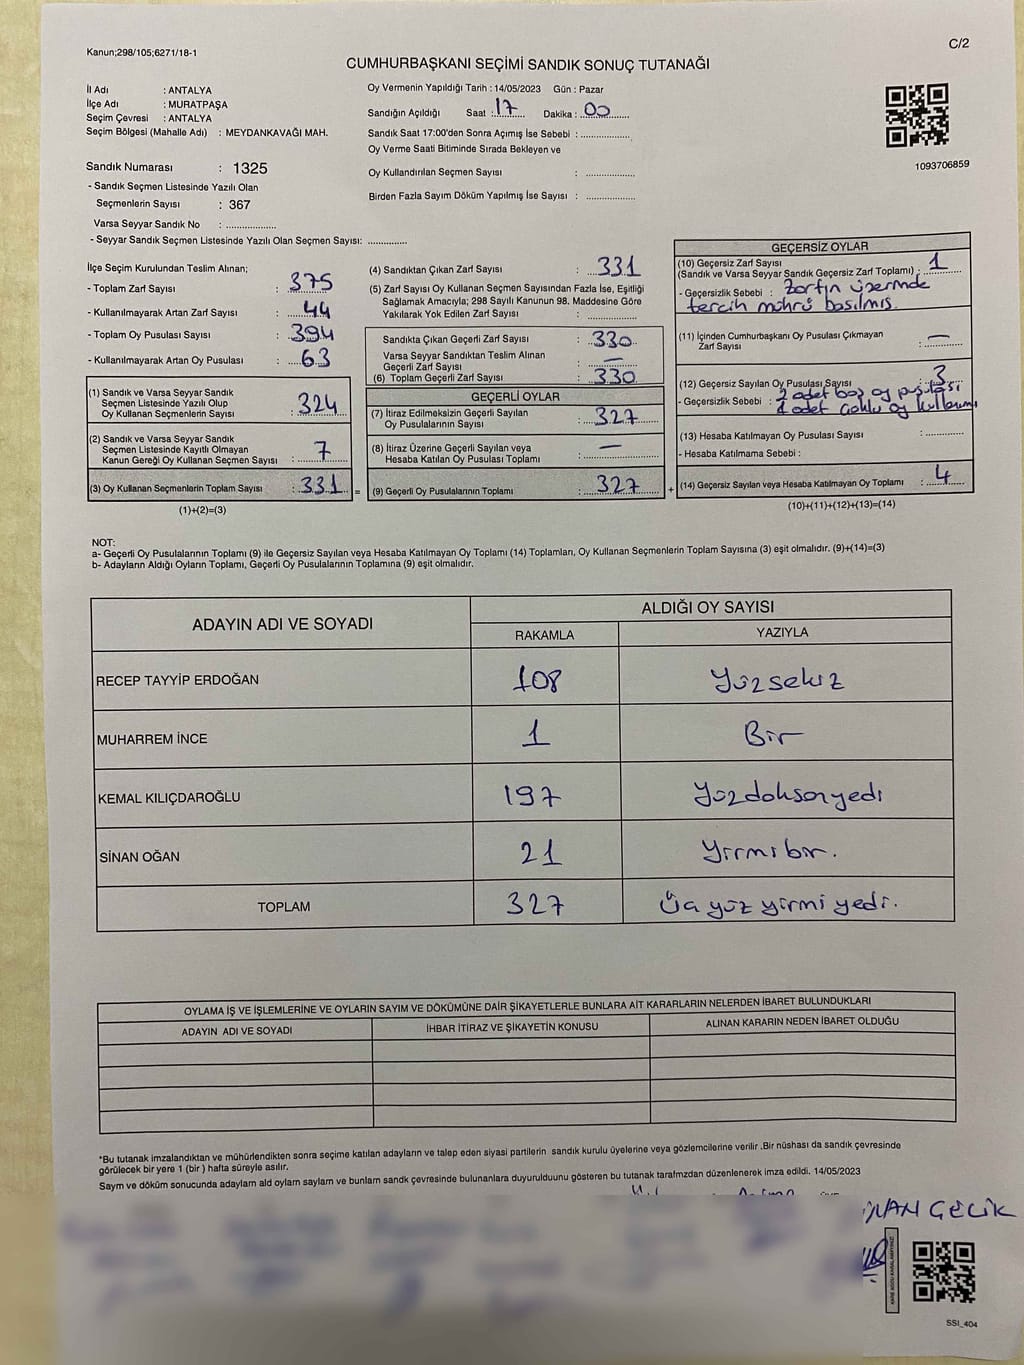 Kanun;298/105;6271/18-1
C/2
CUMHURBAŞKANI SEÇİMİ SANDIK SONUÇ TUTANAĞI
İl Adı : ANTALYA
İlçe Adı : MURATPAŞA
Seçim Çevresi : ANTALYA
Seçim Bölgesi (Mahalle Adı) : MEYDANKAVAĞI MAH.
Sandık Numarası : 1325
- Sandık Seçmen Listesinde Yazılı Olan
Seçmenlerin Sayısı : 367
Varsa Seyyar Sandık No : ................
- Seyyar Sandık Seçmen Listesinde Yazılı Olan Seçmen Sayısı: .............
Oy Vermenin Yapıldığı Tarih : 14/05/2023 Gün : Pazar
Sandığın Açıldığı Saat : 17 Dakika : 00
Sandık Saat 17:00'den Sonra Açımış İse Sebebi : ................
Oy Verme Saati Bitiminde Sırada Bekleyen ve
Oy Kullandırılan Seçmen Sayısı : ................
Birden Fazla Sayım Döküm Yapılmış İse Sayısı : ................
1093706859
İlçe Seçim Kurulundan Teslim Alınan;
- Toplam Zarf Sayısı : 375
- Kullanılmayarak Artan Zarf Sayısı : 44
- Toplam Oy Pusulası Sayısı : 394
- Kullanılmayarak Artan Oy Pusulası : 63
(1) Sandık ve Varsa Seyyar Sandık
Seçmen Listesinde Yazılı Olup
Oy Kullanan Seçmenlerin Sayısı : 324
(2) Sandık ve Varsa Seyyar Sandık
Seçmen Listesinde Kayıtlı Olmayan
Kanun Gereği Oy Kullanan Seçmen Sayısı : 7
(3) Oy Kullanan Seçmenlerin Toplam Sayısı : 331 =
(1)+(2)=(3)
(4) Sandıktan Çıkan Zarf Sayısı : 331
(5) Zarf Sayısı Oy Kullanan Seçmen Sayısından Fazla İse, Eşitliği
Sağlamak Amacıyla; 298 Sayılı Kanunun 98. Maddesine Göre
Yakılarak Yok Edilen Zarf Sayısı : ................
Sandıkta Çıkan Geçerli Zarf Sayısı : 330
Varsa Seyyar Sandıktan Teslim Alınan
Geçerli Zarf Sayısı : —
(6) Toplam Geçerli Zarf Sayısı : 330
GEÇERLİ OYLAR
(7) İtiraz Edilmeksizin Geçerli Sayılan
Oy Pusulalarının Sayısı : 327
(8) İtiraz Üzerine Geçerli Sayılan veya
Hesaba Katılan Oy Pusulası Toplamı : —
(9) Geçerli Oy Pusulalarının Toplamı : 327 +
GEÇERSİZ OYLAR
(10) Geçersiz Zarf Sayısı
(Sandık ve Varsa Seyyar Sandık Geçersiz Zarf Toplamı) : 1
- Geçersizlik Sebebi : Zarfın üzerinde
tercih mührü basılmış.
(11) İçinden Cumhurbaşkanı Oy Pusulası Çıkmayan
Zarf Sayısı : —
(12) Geçersiz Sayılan Oy Pusulası Sayısı : 3
- Geçersizlik Sebebi : 2 adet boş oy pusulası
1 adet çoklu oy kullanımı
(13) Hesaba Katılmayan Oy Pusulası Sayısı : .............
- Hesaba Katılmama Sebebi :
(14) Geçersiz Sayılan veya Hesaba Katılmayan Oy Toplamı : 4
(10)+(11)+(12)+(13)=(14)
NOT:
a- Geçerli Oy Pusulalarının Toplamı (9) ile Geçersiz Sayılan veya Hesaba Katılmayan Oy Toplamı (14) Toplamları, Oy Kullanan Seçmenlerin Toplam Sayısına (3) eşit olmalıdır. (9)+(14)=(3)
b- Adayların Aldığı Oyların Toplamı, Geçerli Oy Pusulalarının Toplamına (9) eşit olmalıdır.
ADAYIN ADI VE SOYADI ALDIĞI OY SAYISI
RAKAMLA YAZIYLA
RECEP TAYYİP ERDOĞAN 108 Yüzsekiz
MUHARREM İNCE 1 Bir
KEMAL KILIÇDAROĞLU 197 Yüzdoksanyedi
SİNAN OĞAN 21 Yirmibir.
TOPLAM 327 Üç yüz yirmi yedi.
OYLAMA İŞ VE İŞLEMLERİNE VE OYLARIN SAYIM VE DÖKÜMÜNE DAİR ŞİKAYETLERLE BUNLARA AİT KARARLARIN NELERDEN İBARET BULUNDUKLARI
ADAYIN ADI VE SOYADI İHBAR İTİRAZ VE ŞİKAYETİN KONUSU ALINAN KARARIN NEDEN İBARET OLDUĞU
*Bu tutanak imzalandıktan ve mühürlendikten sonra seçime katılan adayların ve talep eden siyasi partilerin sandık kurulu üyelerine veya gözlemcilerine verilir .Bir nüshası da sandık çevresinde
görülecek bir yere 1 (bir ) hafta süreyle asılır.
Sayım ve döküm sonucunda adaylam ald oylam saylam ve bunlam sandk çevresinde bulunanlara duyurulduunu gösteren bu tutanak tarafmzdan düzenlenerek imza edildi. 14/05/2023
GEÇİK
SSI_404